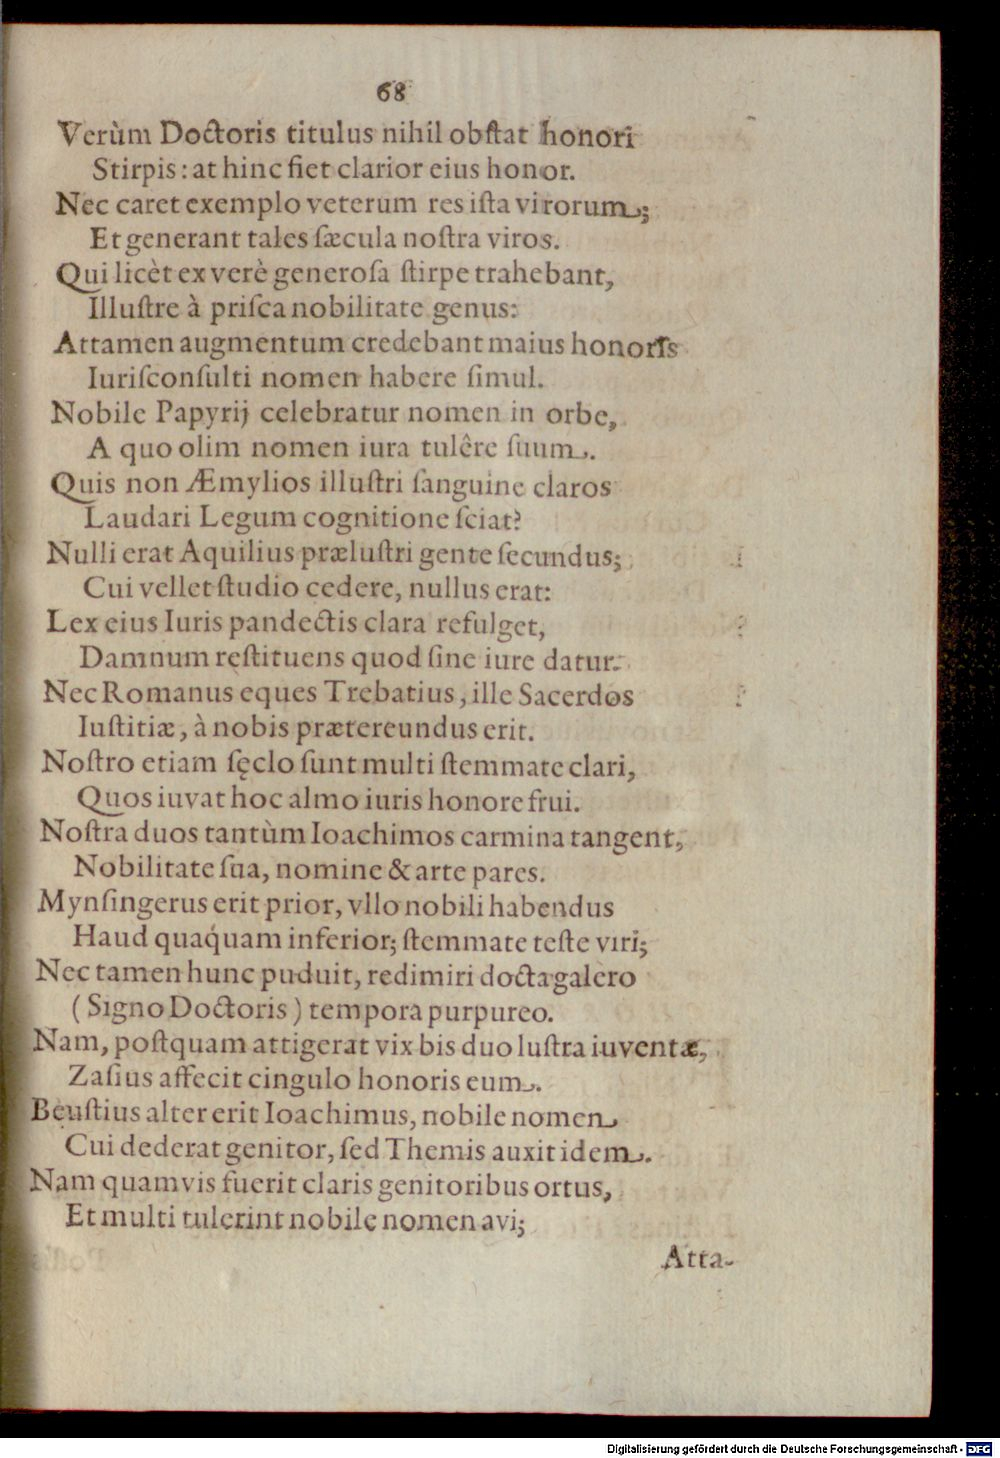 68
Verùm Doctoris titulus nihil obſtat honori
Stirpis: at hinc fiet clarior eius honor.
Nec caret exemplo veterum res iſta virorum;
Et generant tales ſæcula noſtra viros.
Qui licèt ex verè generoſa ſtirpe trahebant,
Illuſtre à priſca nobilitate genus:
Attamen augmentum credebant maius honoris
Iuriſconſulti nomen habere ſimul.
Nobile Papyrij celebratur nomen in orbe,
A quo olim nomen iura tulêre ſuum.
Quis non Æmylios illuſtri ſanguine claros
Laudari Legum cognitione ſciat?
Nulli erat Aquilius præluſtri gente ſecundus;
Cui vellet ſtudio cedere, nullus erat:
Lex eius Iuris pandectis clara refulget,
Damnum reſtituens quod ſine iure datur.
Nec Romanus eques Trebatius, ille Sacerdos
Iuſtitiæ, à nobis prætereundus erit.
Noſtro etiam ſęclo ſunt multi ſtemmate clari,
Quos iuvat hoc almo iuris honore frui.
Noſtra duos tantùm Ioachimos carmina tangent,
Nobilitate ſua, nomine & arte pares.
Mynſingerus erit prior, vllo nobili habendus
Haud quaq́uam inferior; ſtemmate teſte viri;
Nec tamen hunc puduit, redimiri docta galero
(Signo Doctoris) tempora purpureo.
Nam, poſtquam attigerat vix bis duo luſtra iuventæ,
Zaſius affecit cingulo honoris eum.
Beuſtius alter erit Ioachimus, nobile nomen
Cui dederat genitor, ſed Themis auxit idem.
Nam quamvis fuerit claris genitoribus ortus,
Et multi tulerint nobile nomen avi;
Atta-
Digitalisierung gefördert durch die Deutsche Forschungsgemeinschaft - DFG